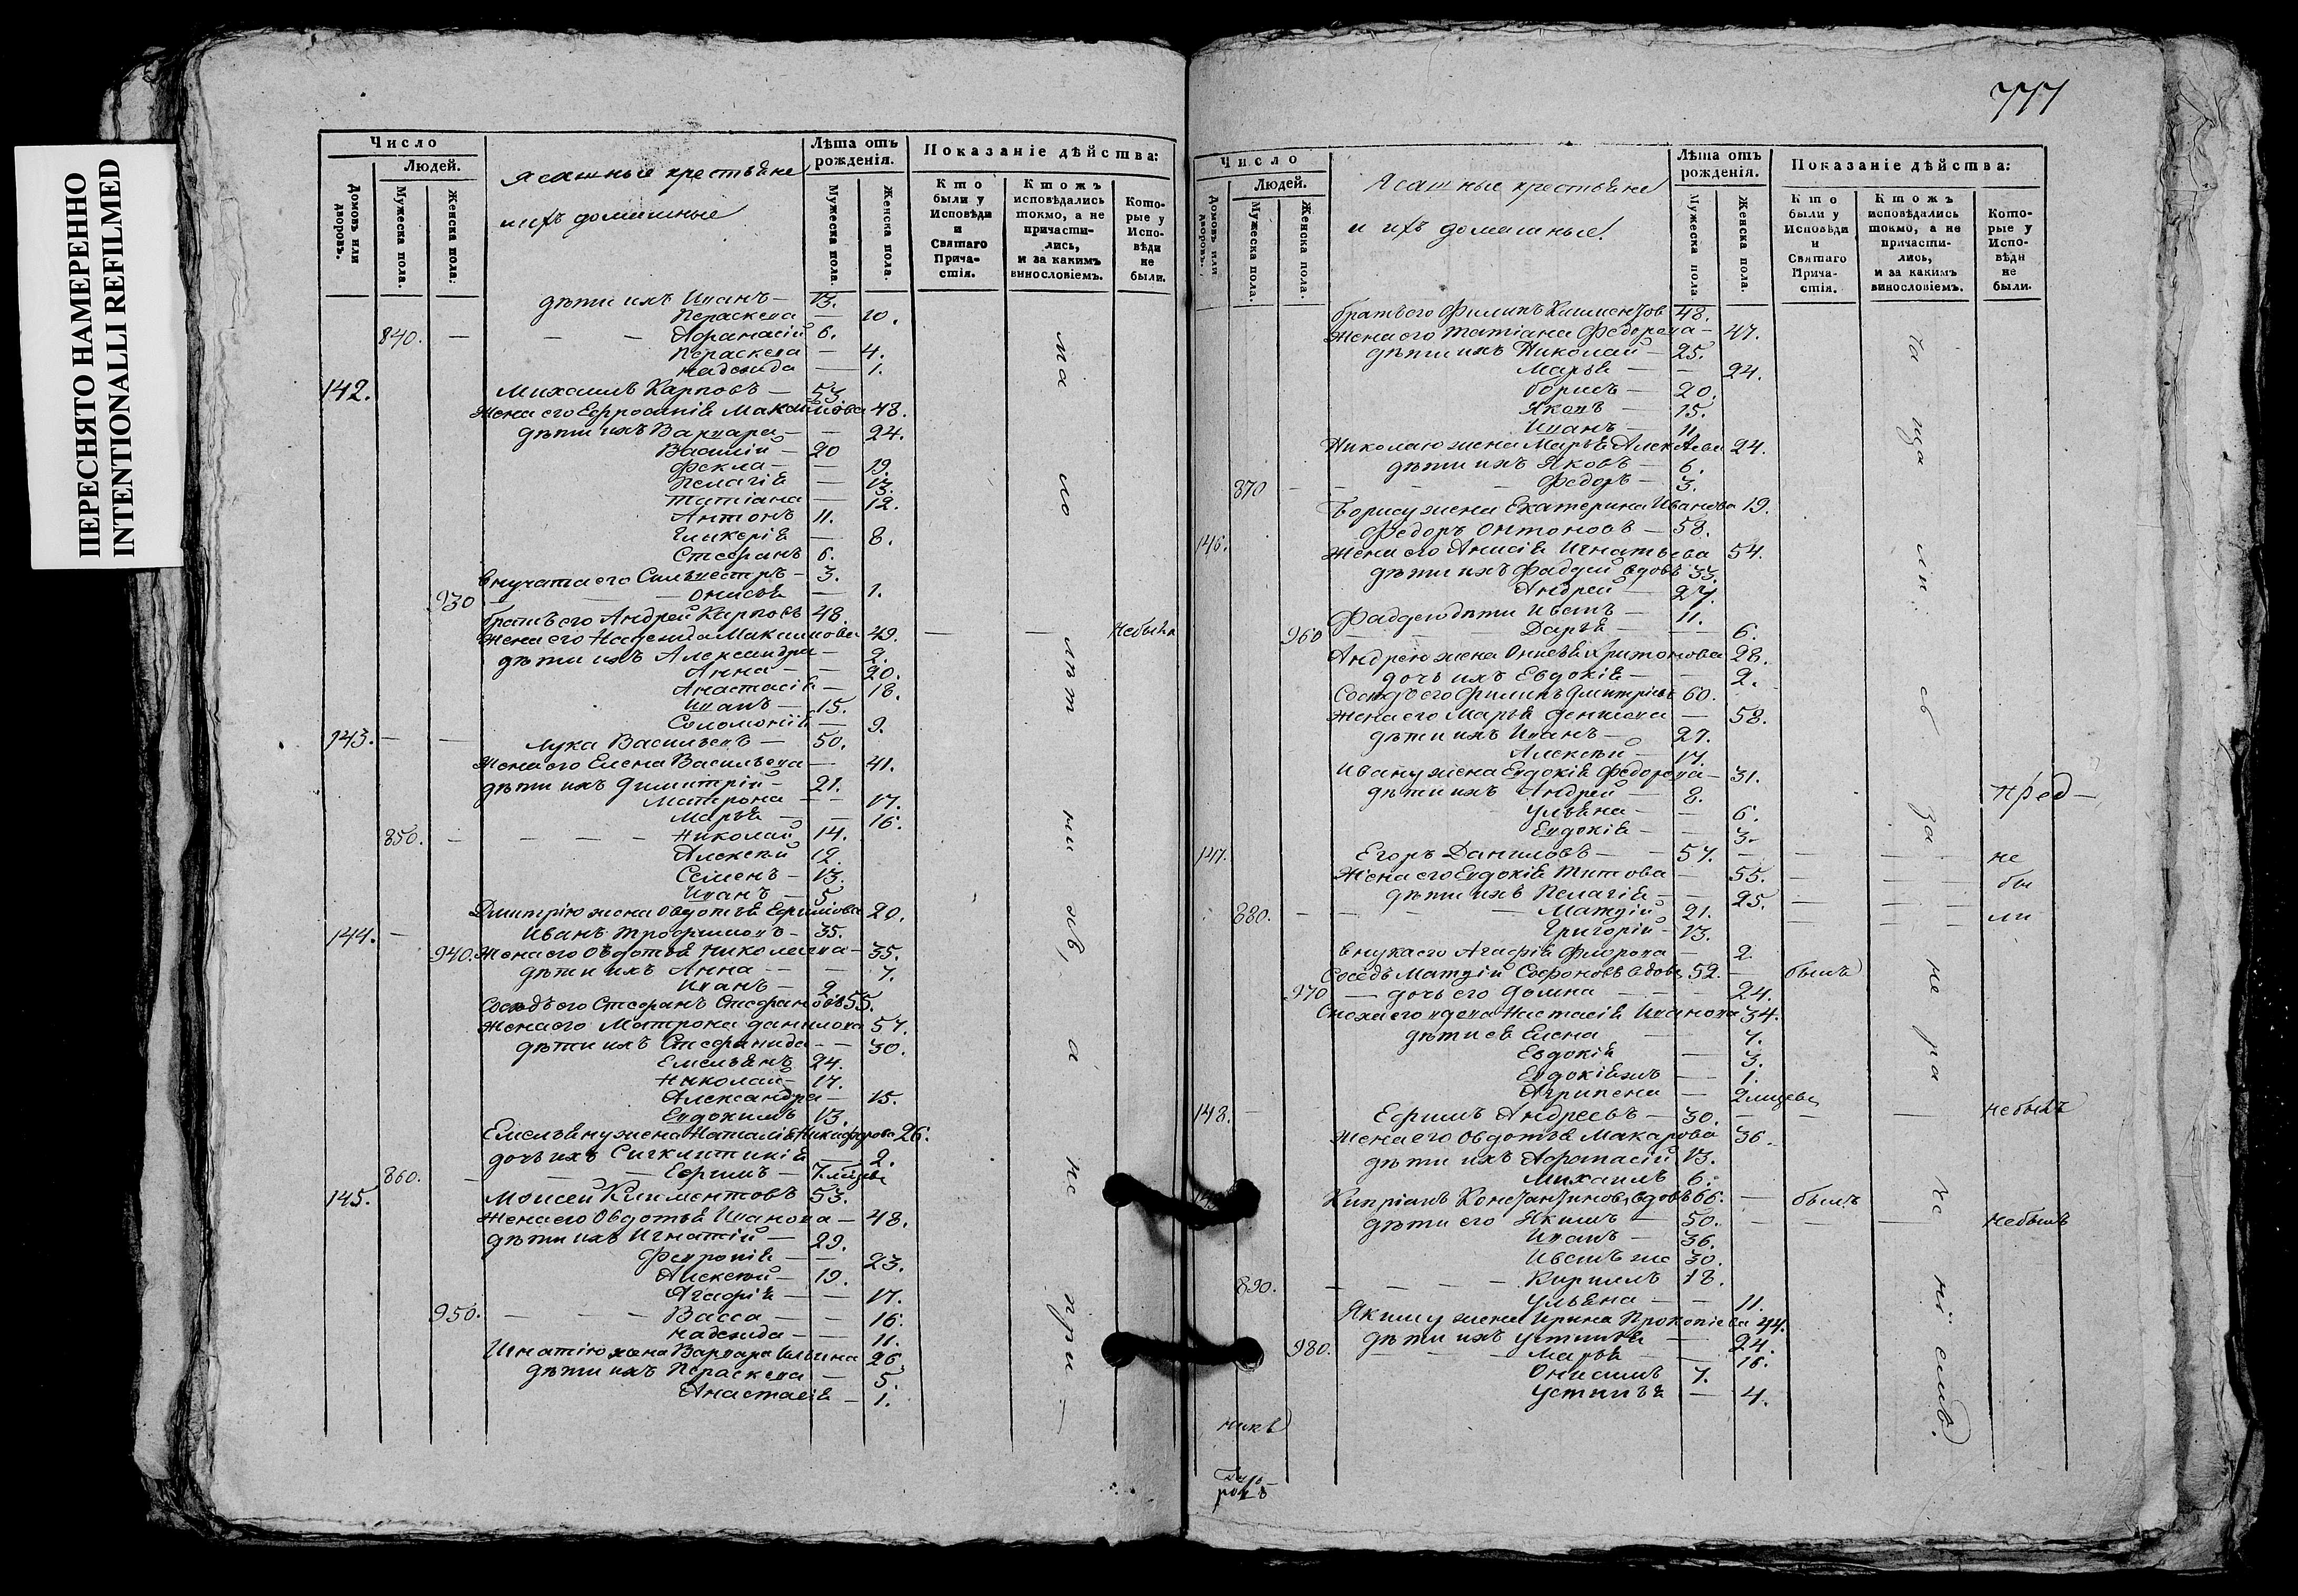 ПЕРЕСНЯТО НАМЕРЕННО
INTENTIONALLI REFILMED
Число
Людей.
Домовъ или дворовъ.
Мужеска пола.
Женска пола.
Ясашные крестьяне
и ихъ домашные
Лѣта отъ рожденія.
Мужеска пола.
Женска пола.
Показаніе дѣйства:
Кто были у Исповѣди и Святаго Прича-стія.
Ктожъ исповѣдались токмо, а не причасти-лись, и за какимъ винословіемъ.
Кото-рые у Испо-вѣди не были.
дѣти ихъ Иванъ — 13.
Параскева — 10.
840. — Афанасій 6.
Параскева — 4.
Надежда — 1.
142. Михаилъ Карповъ — 53.
Жена его Ефросинія Максимова 48.
дѣти ихъ Варвара — 24.
Василій — 20
Фекла — 19.
Пелагія — 13.
Татіана — 12.
Антонъ 11.
Гликерія — 8.
Стефанъ 6.
внучата его Сильвестръ — 3.
930 — Онисья — 1.
братъ его Андрей Карповъ 48.
Жена его Надежда Максимова 49. — —
дѣти ихъ Александра —
Анна — 20.
Анастасія — 18.
Иванъ — 15.
Соломонія — 9.
143. — — Лука Васильевъ — 50.
Жена его Елена Васильева — 41.
дѣти ихъ Димитрій — 21.
Матрона — 17.
Марья — 16.
850. — Николай 14.
Алексѣй 12.
Семенъ — 13.
Иванъ — 5
Дмитрію жена Овдотья Ефимова 20.
144. — Иванъ Трофимовъ — 35.
940. Жена его Овдотья Николаева — 35.
дѣти ихъ Анна — 7.
Иванъ — 2
Сосѣдъ его Стефанъ Стефановъ 55.
Жена его Матрона Данилова 57.
дѣти ихъ Стефанида — 30.
Емельянъ 24.
Николай — 17.
Александра — 15.
Евдокимъ 13.
Емельяну жена Наталія Никифорова 26.
дочь ихъ Сигклитикія — 2.
860. — Ефимъ —
145. Моисей Климентовъ 53.
Жена его Овдотья Иванова — 48.
дѣти ихъ Игнатій — 29.
Феvронія — 23.
Алексѣй — 19.
Агафія — 17.
950. — Васса — 16.
Надежда — 11.
Игнатію жена Варвара Ильина 26.
дѣти ихъ Параскева — 5.
Анастасія — 1.
777
Число
Людей.
Домовъ или дворовъ.
Мужеска пола.
Женска пола.
Ясашные крестьяне
и ихъ домашные.
Лѣта отъ рожденія.
Мужеска пола.
Женска пола.
Показаніе дѣйства:
Кто были у Исповѣди и Святаго Прича-стія.
Ктожъ исповѣдались токмо, а не причасти-лись, и за какимъ винословіемъ.
Кото-рые у Исповѣди не были.
братъ его Филипъ Климентов 48.
Жена его Татіана Федорова — 47.
дѣти ихъ Николай — 25.
Марья — 24.
Борисъ — 20.
Яковъ — 15.
Иванъ — 11.
Николаю жена Марья Алексѣева 24.
дѣти ихъ Яковъ — 6.
870 — Федоръ — 3.
Борису жена Екатерина Иванова 19.
146. Федоръ Онтоновъ — 58.
Жена его Анисія Игнатьева 54.
дѣти ихъ Фаддей вдовъ 33.
Андрей — 27.
Фаддею дѣти Иванъ — 11.
960 — Дарья — 6.
Андрею жена Онисья Харитонова 28.
дочь ихъ Евдокія — 2.
Сосѣдъ его Филипъ Дмитріевъ 60.
Жена его Марья Денисова — 58.
дѣти ихъ Иванъ — 27.
Алексѣй — 17.
Ивану жена Евдокія Федорова — 31.
дѣти ихъ Андрей — 8.
Ульяна — 6.
Евдокія — 3.
147. Егоръ Даниловъ — 57. — — — не
Жена его Евдокія Титова — 55. — — бы
дѣти ихъ Пелагія — 25. — —
880. — Матвій 21. — — ли
Григорій — 13.
внука его Агафія Фролова — 2.
Сосѣдъ Матвій Софоновъ вдовъ 52. — былъ
970 — дочь его Домна — 24.
Сноха его вдова Настасія Иванова 34.
дѣти ея Елена — 7.
Евдокія — 3.
Евдокія жъ — 1.
Агрипена —
148. — Ефимъ Андреевъ — 30. — — — небылъ
Жена его Овдотья Макарова 36.
дѣти ихъ Афонасій 13.
Михаилъ 6.
Кипріанъ Константиновъ вдовъ 66. — былъ
дѣти его Якимъ — 50. — — — небылъ
Иванъ — 36.
Иванъ же 30.
890. — Кирилъ 18.
Ульяна — 11.
Якиму жена Ирина Прокопіева 44.
980. дѣти ихъ Устинья — 24.
Марья — 16.
Онисимъ 7.
Устинья — 4.